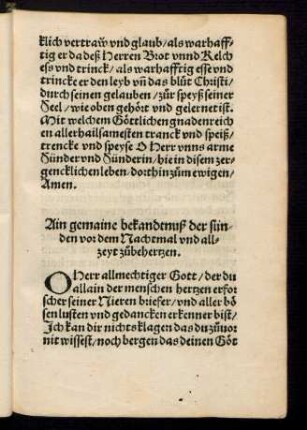 klich vertraw vnd glaub/als warhaff-
tig er da deß Herren Brot vnnd Kelch
ess vnd trinck/als warhafftig esse vnd
trincke er den leyb vn̄ das blůt Christi/
durch seinen gelauben/zůr speyß seiner
Seel/wie oben gehört vnd gelernet ist.
Mit welchem Göttlichen gnadenreich
en allerhailsamesten tranck vnd speiß/
trencke vnd speyse O Herr vnns arme
Sünder vnd Sünderin/hie in disem zer-
gencklichen leben/dort hin zům ewigen/
Amen.
Ain gemaine bekandtnuß der sün
den vor dem Nachtmal vnd all-
zeyt zůbehertzen.
O Herr allmechtiger Gott/der du
allain der menschen hertzen erfor
scher seiner Nieren briefer/vnd aller bö
sen lusten vnd gedancken erkenner bist/
Ich kan dir nichts klagen das du zůuor
nit wissest/noch bergen das deinen Göt